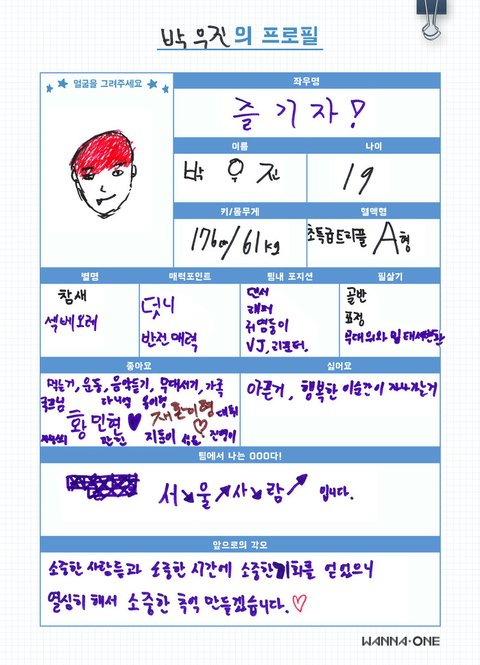 박우진의 프로필
얼굴을 그려주세요
좌우명
즐기자!
이름
나이
박우진
19
키/몸무게
혈액형
176cm/61kg
초특급트리플 A형
별명
매력포인트
팀내 포지션
필살기
참새
섹베오레
덧니
반전매력
댄서
래퍼
귀염둥이
VJ, 리포터.
골반
표정
무대위와 밑 태세변환
좋아요
싫어요
먹는거, 운동, 음악듣기, 무대서기, 가족
황민현 재환이형 대휘
지훈이 성운 진영이
아픈거, 행복한 이순간이 지나가는거
팀에서 나는 OOO다!
서↘울↗사↘람↗ 입니다.
앞으로의 각오
소중한 사람들과 소중한 시간에 소중한 기회를 얻었으니
열심히 해서 소중한 추억 만들겠습니다.♡
WANNA·ONE